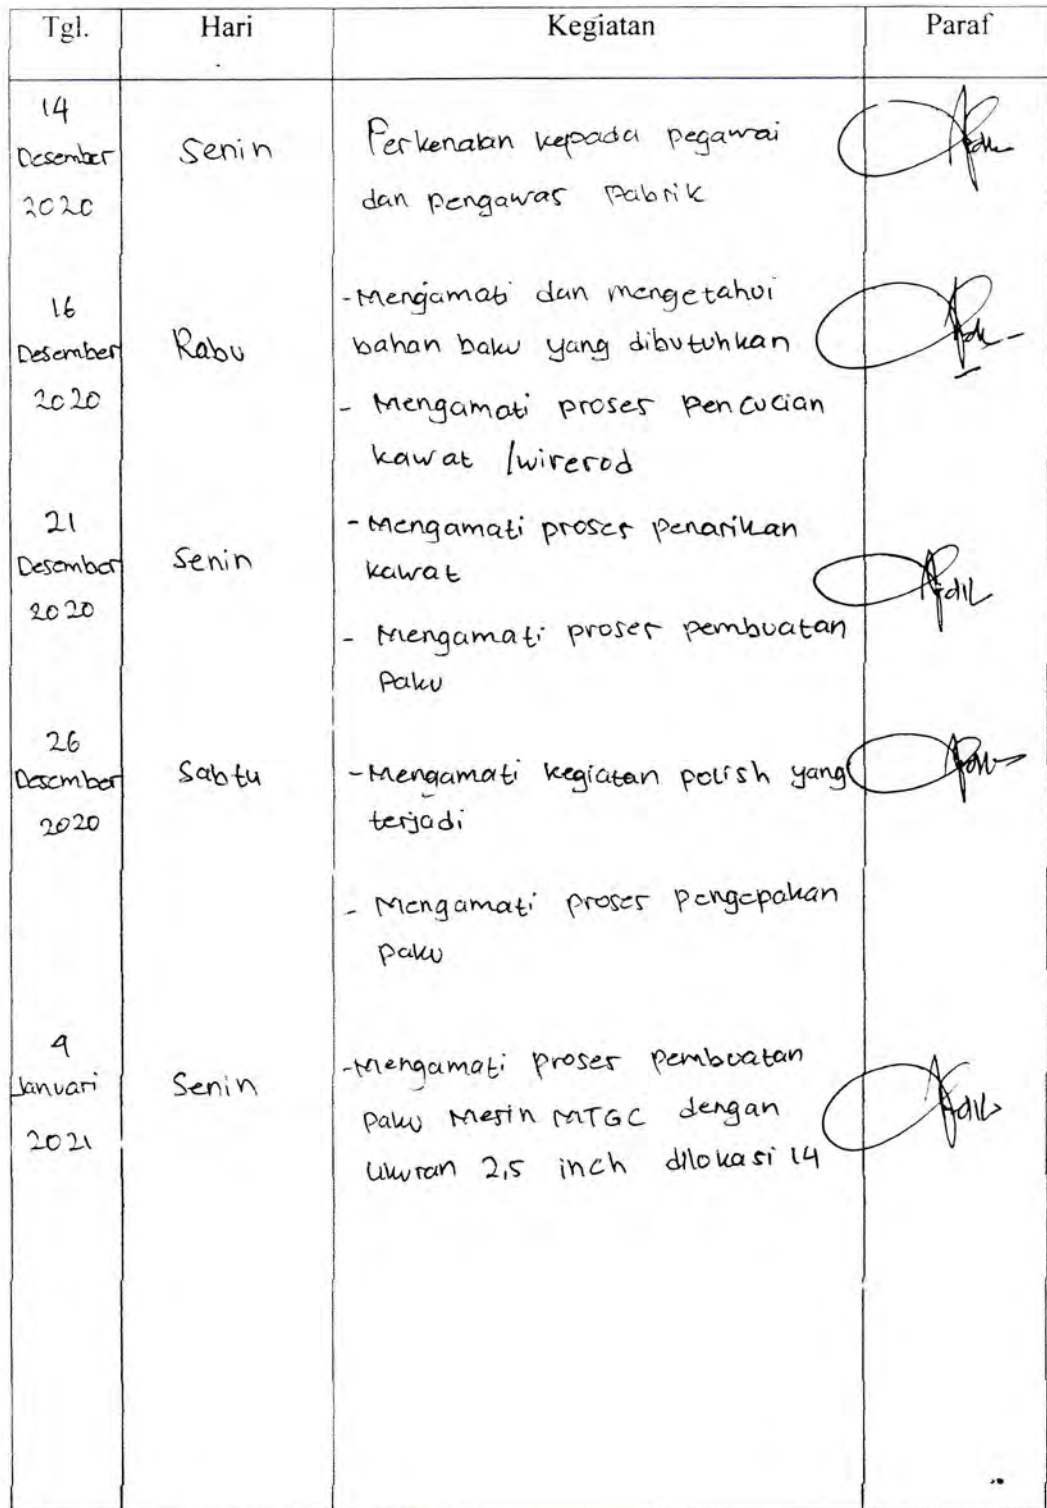 Tgl. Hari Kegiatan Paraf
14
Desember
2020
Senin
Perkenalan kepada pegawai
dan pengawas Pabrik
16
Desember
2020
Rabu
- Mengamati dan mengetahui
bahan baku yang dibutuhkan
- Mengamati proses pencucian
kawat /wirerod
21
Desember
2020
Senin
- Mengamati proses penarikan
kawat
- Mengamati proses pembuatan
paku
26
Desember
2020
Sabtu
- Mengamati kegiatan polish yang
terjadi
- Mengamati proses pengepakan
paku
4
Januari
2021
Senin
- Mengamati proses pembuatan
paku Mesin MTGC dengan
ukuran 2,5 inch dilokasi 14